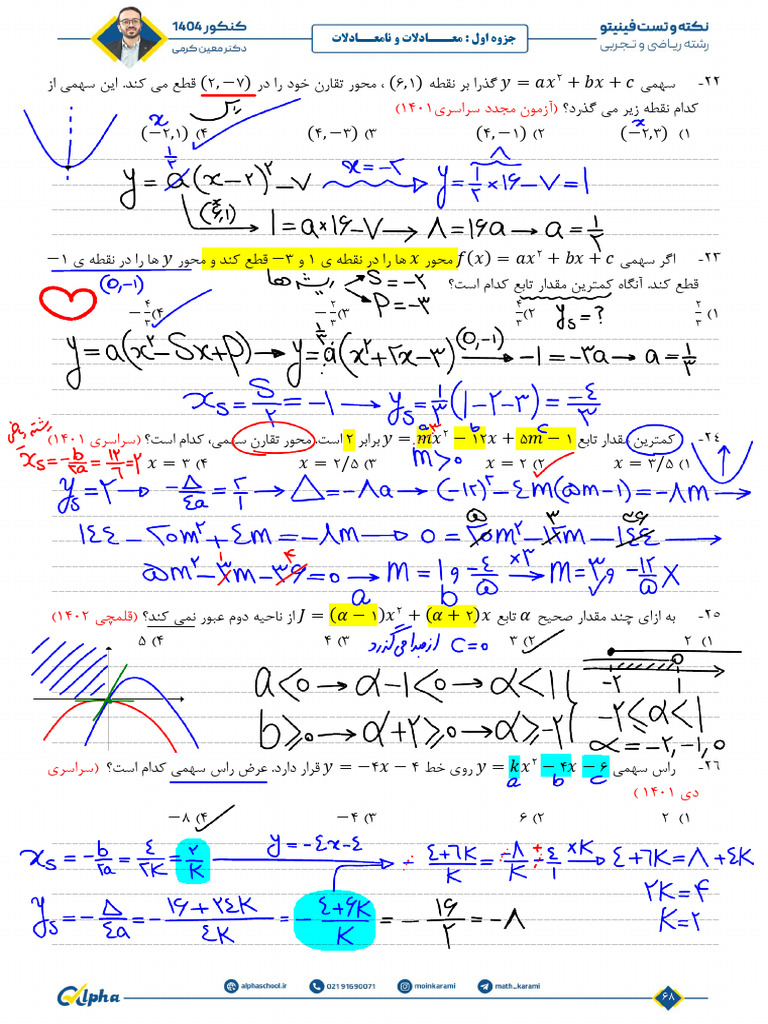 نکته و تست فینیتو
رشته ریاضی و تجربی
جزوه اول : معـــــادلات و نامعـــــادلات
کنکور 1404
دکتر معین کرمی
۲۲- سهمی y = ax² + bx + c گذرا بر نقطه (۶,۱) ، محور تقارن خود را در (۲,−۷) قطع می کند. این سهمی از
کدام نقطه زیر می گذرد؟ (آزمون مجدد سراسری ۱۴۰۱)
۱) (−۲,۳) ۲) (۴,−۱) ۳) (۴,−۳) ۴) (−۲,۱)
y = a(x−۲)² −۷ x=−۲ y = ۱/۲ ×۱۶ −۷ = ۱
(۶,۱) ۱ = a×۱۶−۷ → ۸ = ۱۶a → a = ۱/۲
۲۳- اگر سهمی f(x) = ax² + bx + c محور x ها را در نقطه ی ۱ و ۳− قطع کند و محور y ها را در نقطه ی ۱−
(0,−1)
قطع کند. آنگاه کمترین مقدار تابع کدام است؟ ریشه ها S = −۲
P = −۳
y_s = ?
۱) ۲/۳ ۲) ۴/۳ ۳) −۲/۳ ۴) −۴/۳
y = a(x² − Sx + P) → y = a(x² + ۲x − ۳) (0,−1) → −1 = −۳a → a = ۱/۳
x_s = S/۲ = −1 → y_s = ۱/۳ (1 − ۲ − ۳) = −۴/۳
۲۴- کمترین مقدار تابع y = mx² − ۱۲x + ۵m − ۱ برابر ۲ است. محور تقارن سهمی، کدام است؟ (سراسری ۱۴۰۱) رشته ریاضی
m>0
x_s = −b/۲a = ۱۲/۶ = ۲
۱) x = ۳/۵ ۲) x = ۲ ۳) x = ۲/۵ ۴) x = ۳
y_s = ۲ → −Δ/۴a = ۲/۱ → Δ = −۸a → (−۱۲)² − ۴m(۵m−۱) = −۸m →
۱۴۴ − ۲۰m² + ۴m = −۸m → 0 = ۲۰m² − ۱۲m − ۱۴۴ →
۵m² − ۳m − ۳۶ = 0 → m = ۱ و −۴/۵ ×۳ → m = ۳ و −۱۲/۵ X
۲۵- به ازای چند مقدار صحیح α تابع J = (α − ۱)x² + (α + ۲)x از ناحیه دوم عبور نمی کند؟ (قلمچی ۱۴۰۲)
۱) ۲ ۲) ۳ ۳) ۴ ۴) ۵
C = 0 از مبدا می گذرد
a<0 → α−1<0 → α<1
b≥0 → α+۲≥0 → α≥−۲
−۲ ≤ α < 1
α = −۲, −1, 0
۲۶- راس سهمی y = kx² − ۴x − ۶ روی خط y = −۴x − ۴ قرار دارد. عرض راس سهمی کدام است؟ (سراسری
دی ۱۴۰۱ )
۱) ۲ ۲) ۶ ۳) −۴ ۴) −۸
x_s = −b/۲a = ۴/۲K = ۲/K y = −۴x−۴ − ۴+۶K/K = −۸/K − ۴/۱ ×K → ۴+۶K = ۸+۴K
۲K = ۴
K = ۲
y_s = −Δ/۴a = − ۱۶+۲۴K/۴K = − ۴+۶K/K = − ۱۶/۲ = −۸
Alpha
alphaschool.ir
021 91690071
moinkarami
math_karami
۶۸